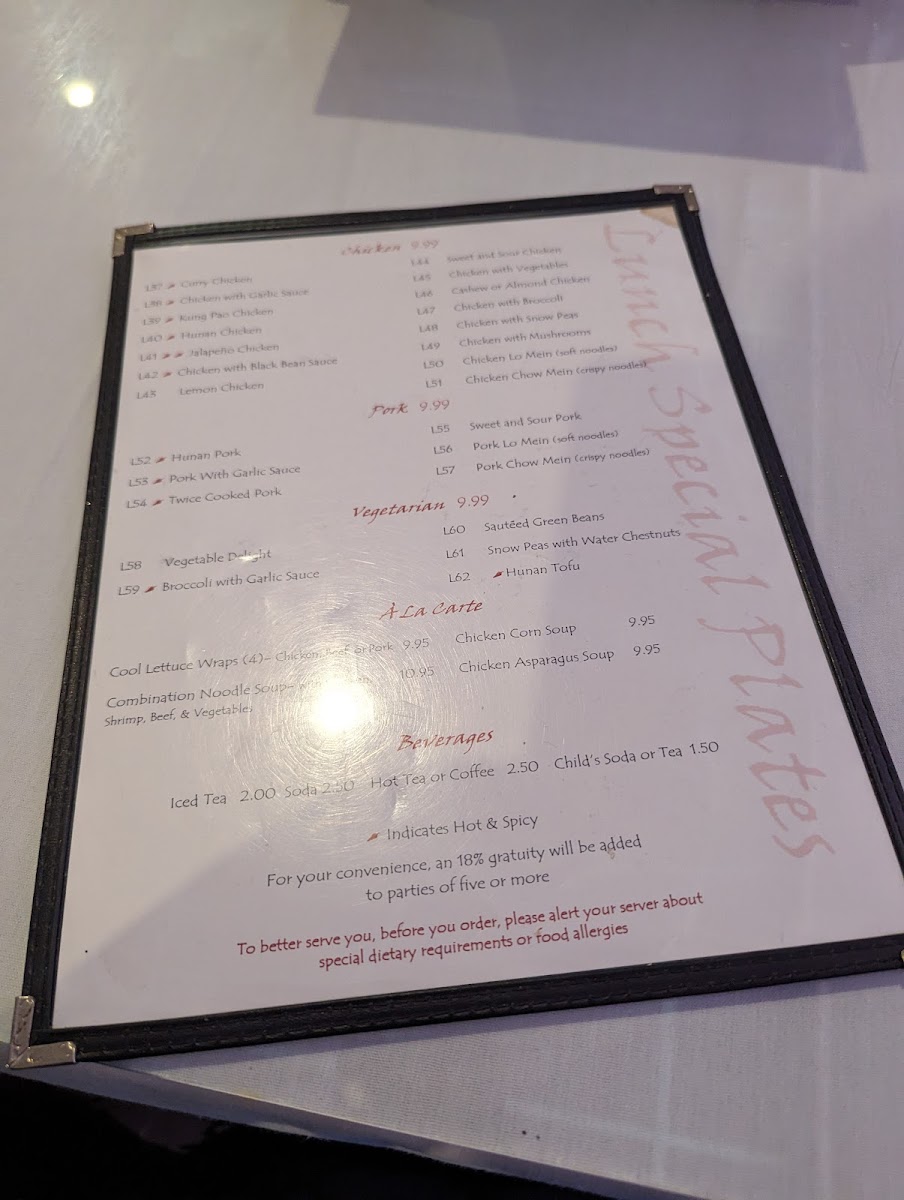 Lunch Special Plates
Chicken 9.99
L37 Curry Chicken
L38 Chicken with Garlic Sauce
L39 Kung Pao Chicken
L40 Hunan Chicken
L41 Jalapeño Chicken
L42 Chicken with Black Bean Sauce
L43 Lemon Chicken
L44 Sweet and Sour Chicken
L45 Chicken with Vegetables
L46 Cashew or Almond Chicken
L47 Chicken with Broccoli
L48 Chicken with Snow Peas
L49 Chicken with Mushrooms
L50 Chicken Lo Mein (soft noodles)
L51 Chicken Chow Mein (crispy noodles)
Pork 9.99
L52 Hunan Pork
L53 Pork With Garlic Sauce
L54 Twice Cooked Pork
L55 Sweet and Sour Pork
L56 Pork Lo Mein (soft noodles)
L57 Pork Chow Mein (crispy noodles)
Vegetarian 9.99
L58 Vegetable Delight
L59 Broccoli with Garlic Sauce
L60 Sautéed Green Beans
L61 Snow Peas with Water Chestnuts
L62 Hunan Tofu
À La Carte
Cool Lettuce Wraps (4)– Chicken, Beef, or Pork 9.95
Combination Noodle Soup– with 10.95
Shrimp, Beef, & Vegetables
Chicken Corn Soup 9.95
Chicken Asparagus Soup 9.95
Beverages
Iced Tea 2.00 Soda 2.50 Hot Tea or Coffee 2.50 Child's Soda or Tea 1.50
Indicates Hot & Spicy
For your convenience, an 18% gratuity will be added
to parties of five or more
To better serve you, before you order, please alert your server about
special dietary requirements or food allergies